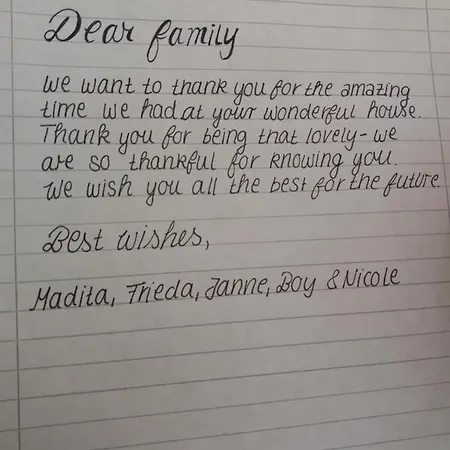 Dear family
we want to thank you for the amazing
time we had at your wonderful house.
Thank you for being that lovely - we
are so thankful for knowing you.
We wish you all the best for the future.
Best wishes,
Madita, Frieda, Janne, Boy & Nicole